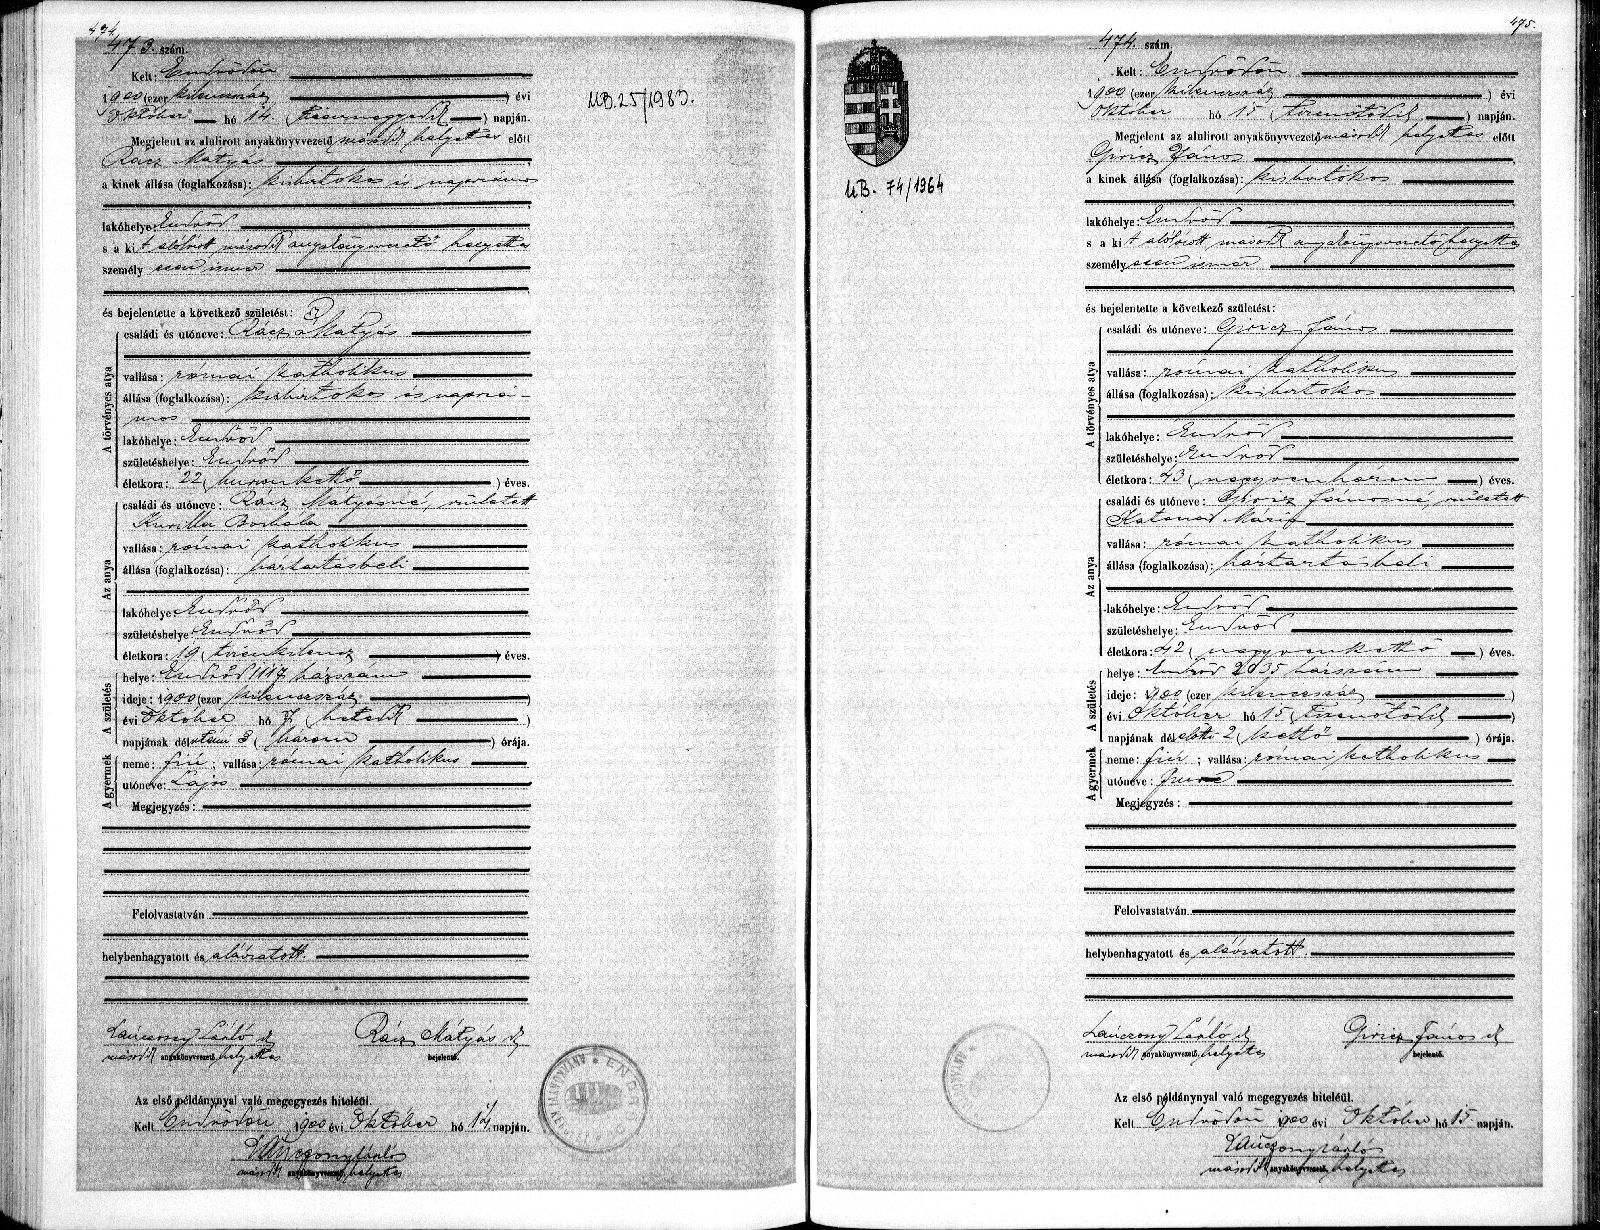 474.
473. szám.
Kelt: Endrődön
1900 (ezer kilencszáz ) évi
Október hó 14. (tizennegyedik ) napján.
Megjelent az alulirott anyakönyvvezető másodk helyettes előtt
Rácz Mátyás
a kinek állása (foglalkozása): kisbirtokos és napszámos
lakóhelye: Endrőd
s a ki t alólírott másodk anyakönyvvezető helyettes
személy esen ismer
és bejelentette a következő születést:
A törvényes atya
családi és utóneve: Rácz Mátyás
vallása: római katholikus
állása (foglalkozása): kisbirtokos és napszá-
mos
lakóhelye: Endrőd
születéshelye: Endrőd
életkora: 22 (huszonkettő ) éves.
Az anya
családi és utóneve: Rácz Mátyásné, született
Kurilla Borbála
vallása: római katholikus
állása (foglalkozása): háztartásbeli
lakóhelye: Endrőd
születéshelye: Endrőd
életkora: 19 (tizenkilencz ) éves.
A születés
helye: Endrőd 1117 házszám
ideje: 1900 (ezer kilencszáz )
évi Október hó 7. (hetedik )
napjának délutáni 3 (három ) órája.
A gyermek
neme: fiú ; vallása: római katholikus
utóneve: Lajos
Megjegyzés:
Felolvastatván
helybenhagyatott és aláíratott.
Lánczony László sk Rácz Mátyás sk
másodk anyakönyvvezető helyettes bejelentő.
Az első példánynyal való megegyezés hiteléül.
Kelt Endrődön 1900 évi Október hó 14 napján.
Lánczony László
másodk anyakönyvvezető helyettes
UB. 25/1983.
495.
474. szám.
Kelt: Endrődön
1900 (ezer kilencszáz ) évi
Október hó 15 (tizenötödik ) napján.
Megjelent az alulirott anyakönyvvezető másodk helyettes előtt
Giricz János
a kinek állása (foglalkozása): kisbirtokos
lakóhelye: Endrőd
s a ki t alólírott másodk anyakönyvvezető helyettes
személy esen ismer
és bejelentette a következő születést:
A törvényes atya
családi és utóneve: Giricz János
vallása: római katholikus
állása (foglalkozása): kisbirtokos
lakóhelye: Endrőd
születéshelye: Endrőd
életkora: 43 (negyvenhárom ) éves.
Az anya
családi és utóneve: Giricz Jánosné, született
Katona Mária
vallása: római katholikus
állása (foglalkozása): háztartásbeli
lakóhelye: Endrőd
születéshelye: Endrőd
életkora: 42 (negyvenkettő ) éves.
A születés
helye: Endrőd 2035 házszám
ideje: 1900 (ezer kilencszáz )
évi Október hó 15 (tizenötödik )
napjának délelőtti 2 (kettő ) órája.
A gyermek
neme: fiú ; vallása: római katholikus
utóneve: Imre
Megjegyzés:
Felolvastatván
helybenhagyatott és aláíratott.
Lánczony László sk Giricz János sk
másodk anyakönyvvezető helyettes bejelentő.
Az első példánynyal való megegyezés hiteléül.
Kelt Endrődön 1900 évi Október hó 15 napján.
Lánczony László
másodk anyakönyvvezető helyettes
UB. 74/1964